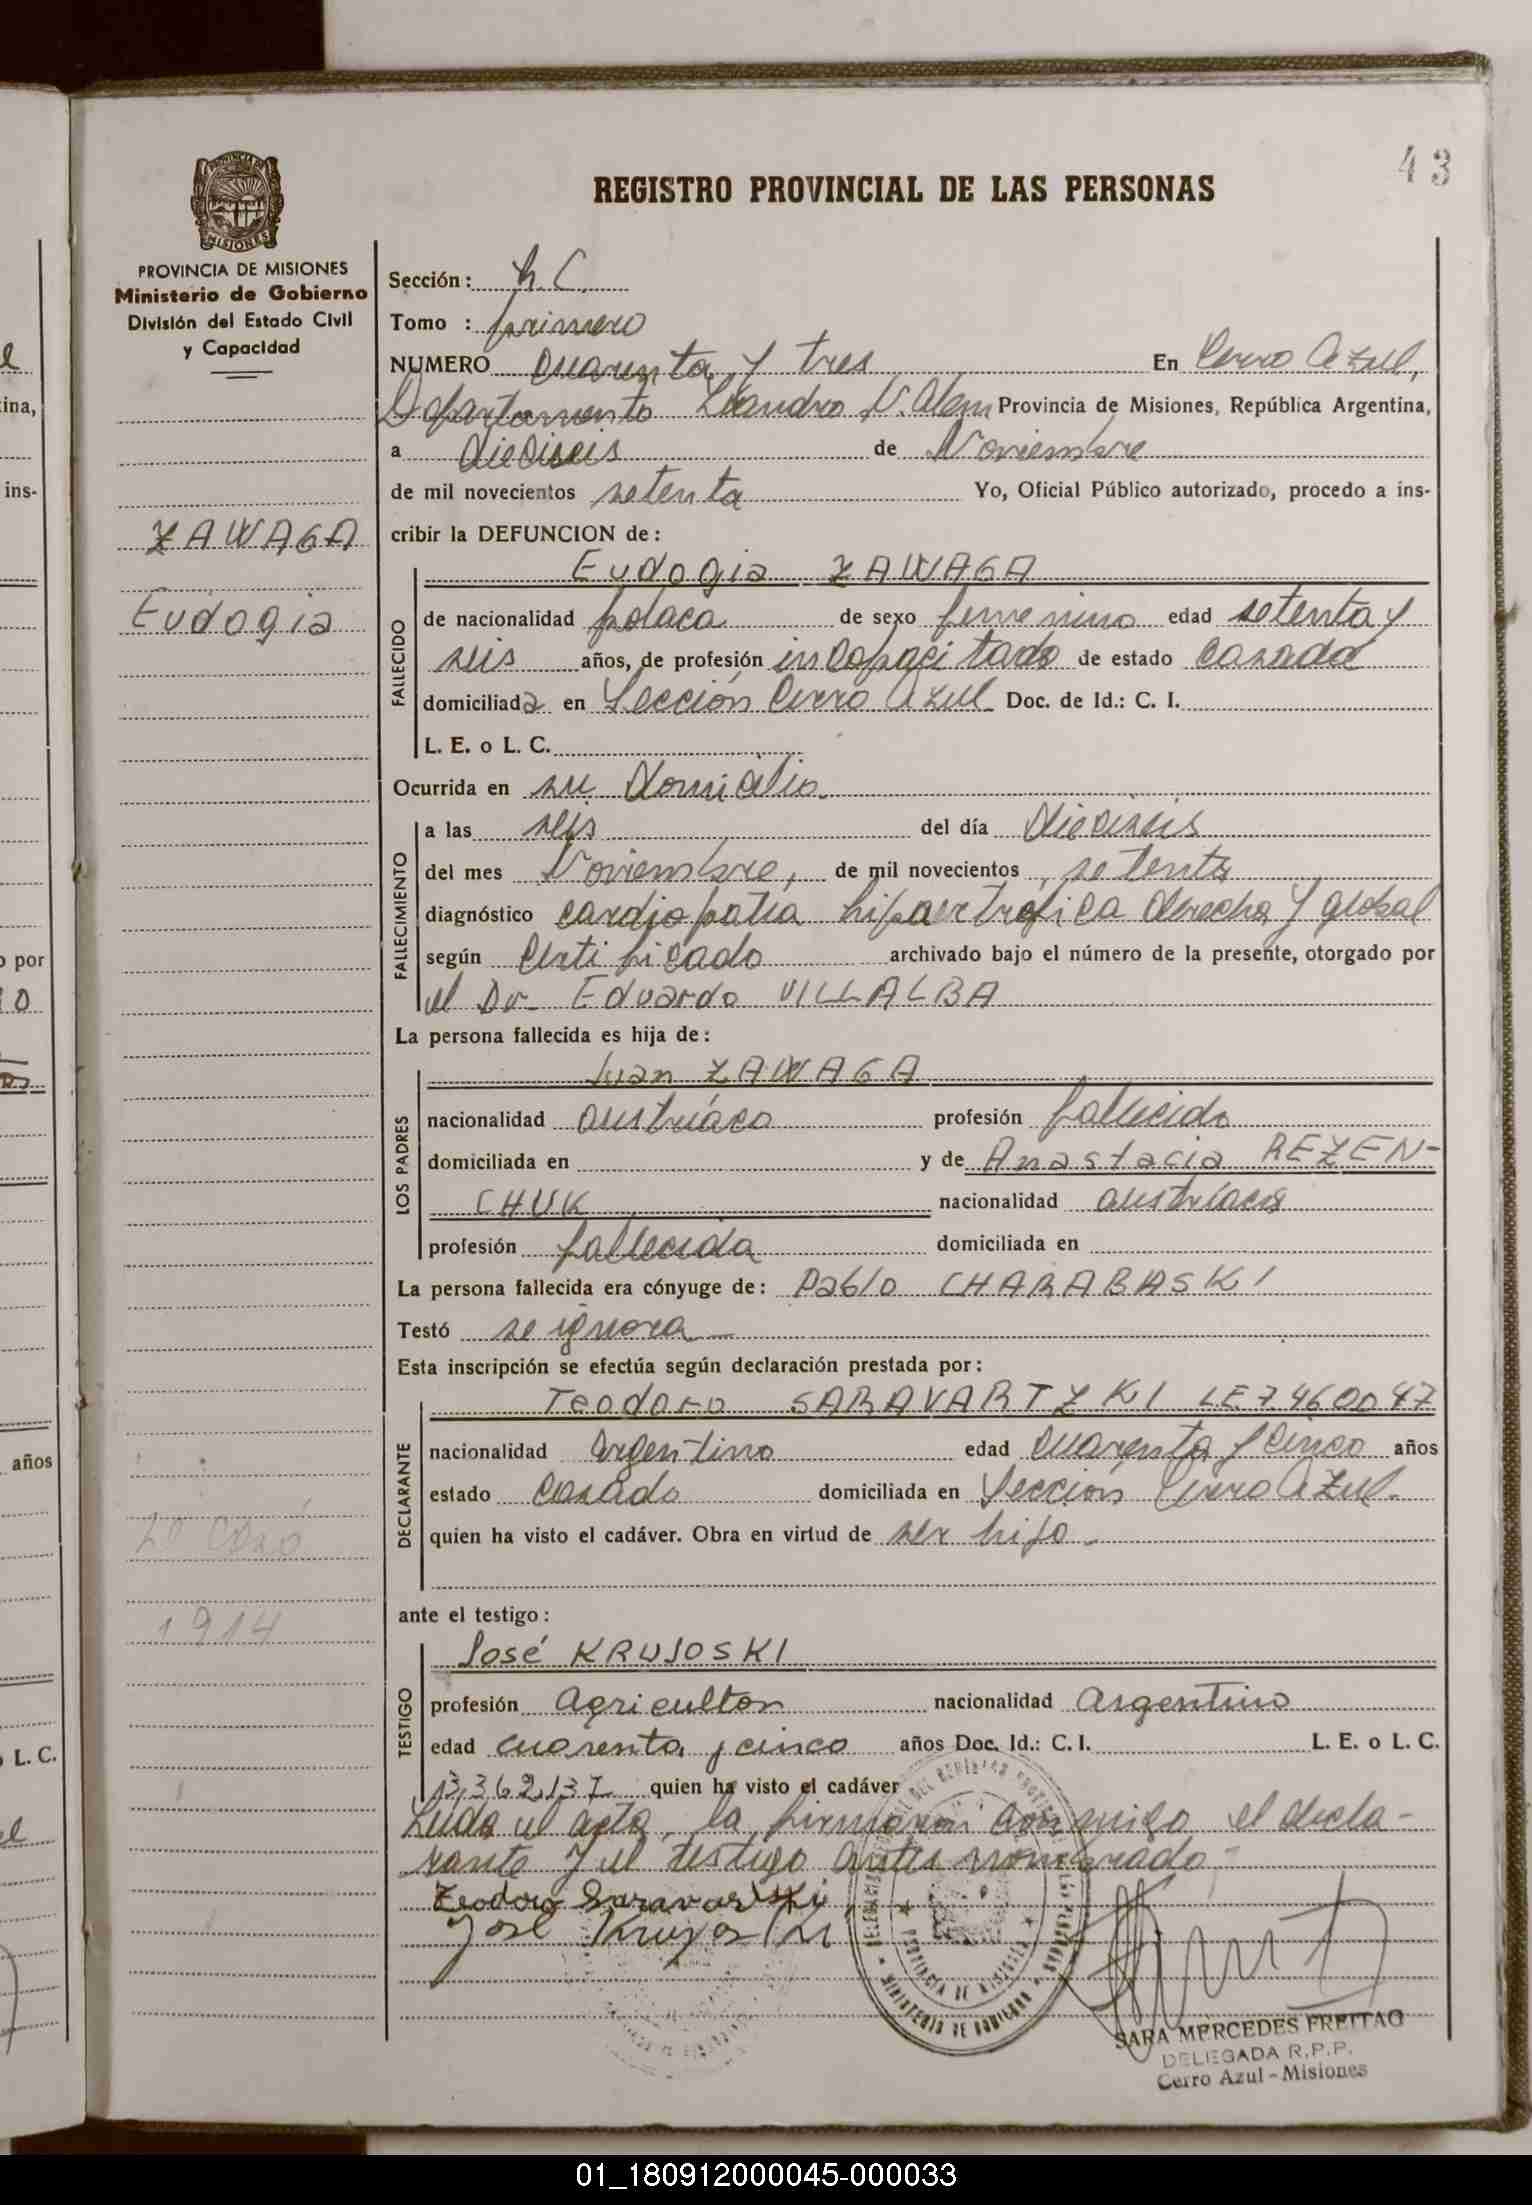 43
REGISTRO PROVINCIAL DE LAS PERSONAS
PROVINCIA DE MISIONES
Ministerio de Gobierno
División del Estado Civil
y Capacidad
ZAWAGA
Eudogia
2º Casó
1914
Sección: h C.
Tomo : primero
NUMERO cuarenta y tres En Cerro Azul,
Departamento Leandro N. Alem Provincia de Misiones, República Argentina,
a dieciseis de Noviembre
de mil novecientos setenta Yo, Oficial Público autorizado, procedo a ins-
cribir la DEFUNCION de:
Eudogia ZAWAGA
FALLECIDO
de nacionalidad polaca de sexo femenino edad setenta y
seis años, de profesión incapacitado de estado casada
domiciliada en Sección Cerro Azul Doc. de Id.: C. I.
L. E. o L. C.
Ocurrida en su domicilio
FALLECIMIENTO
a las seis del día dieciseis
del mes Noviembre, de mil novecientos setenta
diagnóstico cardiopatia hipertrófica derecha y global
según certificado archivado bajo el número de la presente, otorgado por
el Dr. Eduardo VILLALBA
La persona fallecida es hija de:
LOS PADRES
Juan ZAWAGA
nacionalidad austríaco profesión fallecido
domiciliada en y de Anastacia REZEN-
CHUK nacionalidad austríaca
profesión fallecida domiciliada en
La persona fallecida era cónyuge de: Pablo CHARABASKI
Testó se ignora
Esta inscripción se efectúa según declaración prestada por:
DECLARANTE
Teodoro SARAVARTZKI LE 7460047
nacionalidad argentino edad cuarenta y cinco años
estado casado domiciliada en Sección Cerro Azul
quien ha visto el cadáver. Obra en virtud de ser hijo
ante el testigo:
TESTIGO
José KRUJOSKI
profesión agricultor nacionalidad argentino
edad cuarenta y cinco años Doc. Id.: C. I. L. E. o L. C.
3.362.137 quien ha visto el cadáver
Leida el acta, la firmaron conmigo el decla-
rante y el testigo antes nombrado
Teodoro
José
PROVINCIA DE MISIONES
MINISTERIO DE GOBIERNO
SARA MERCEDES FREITAG
DELEGADA R.P.P.
Cerro Azul - Misiones
01_180912000045-000033